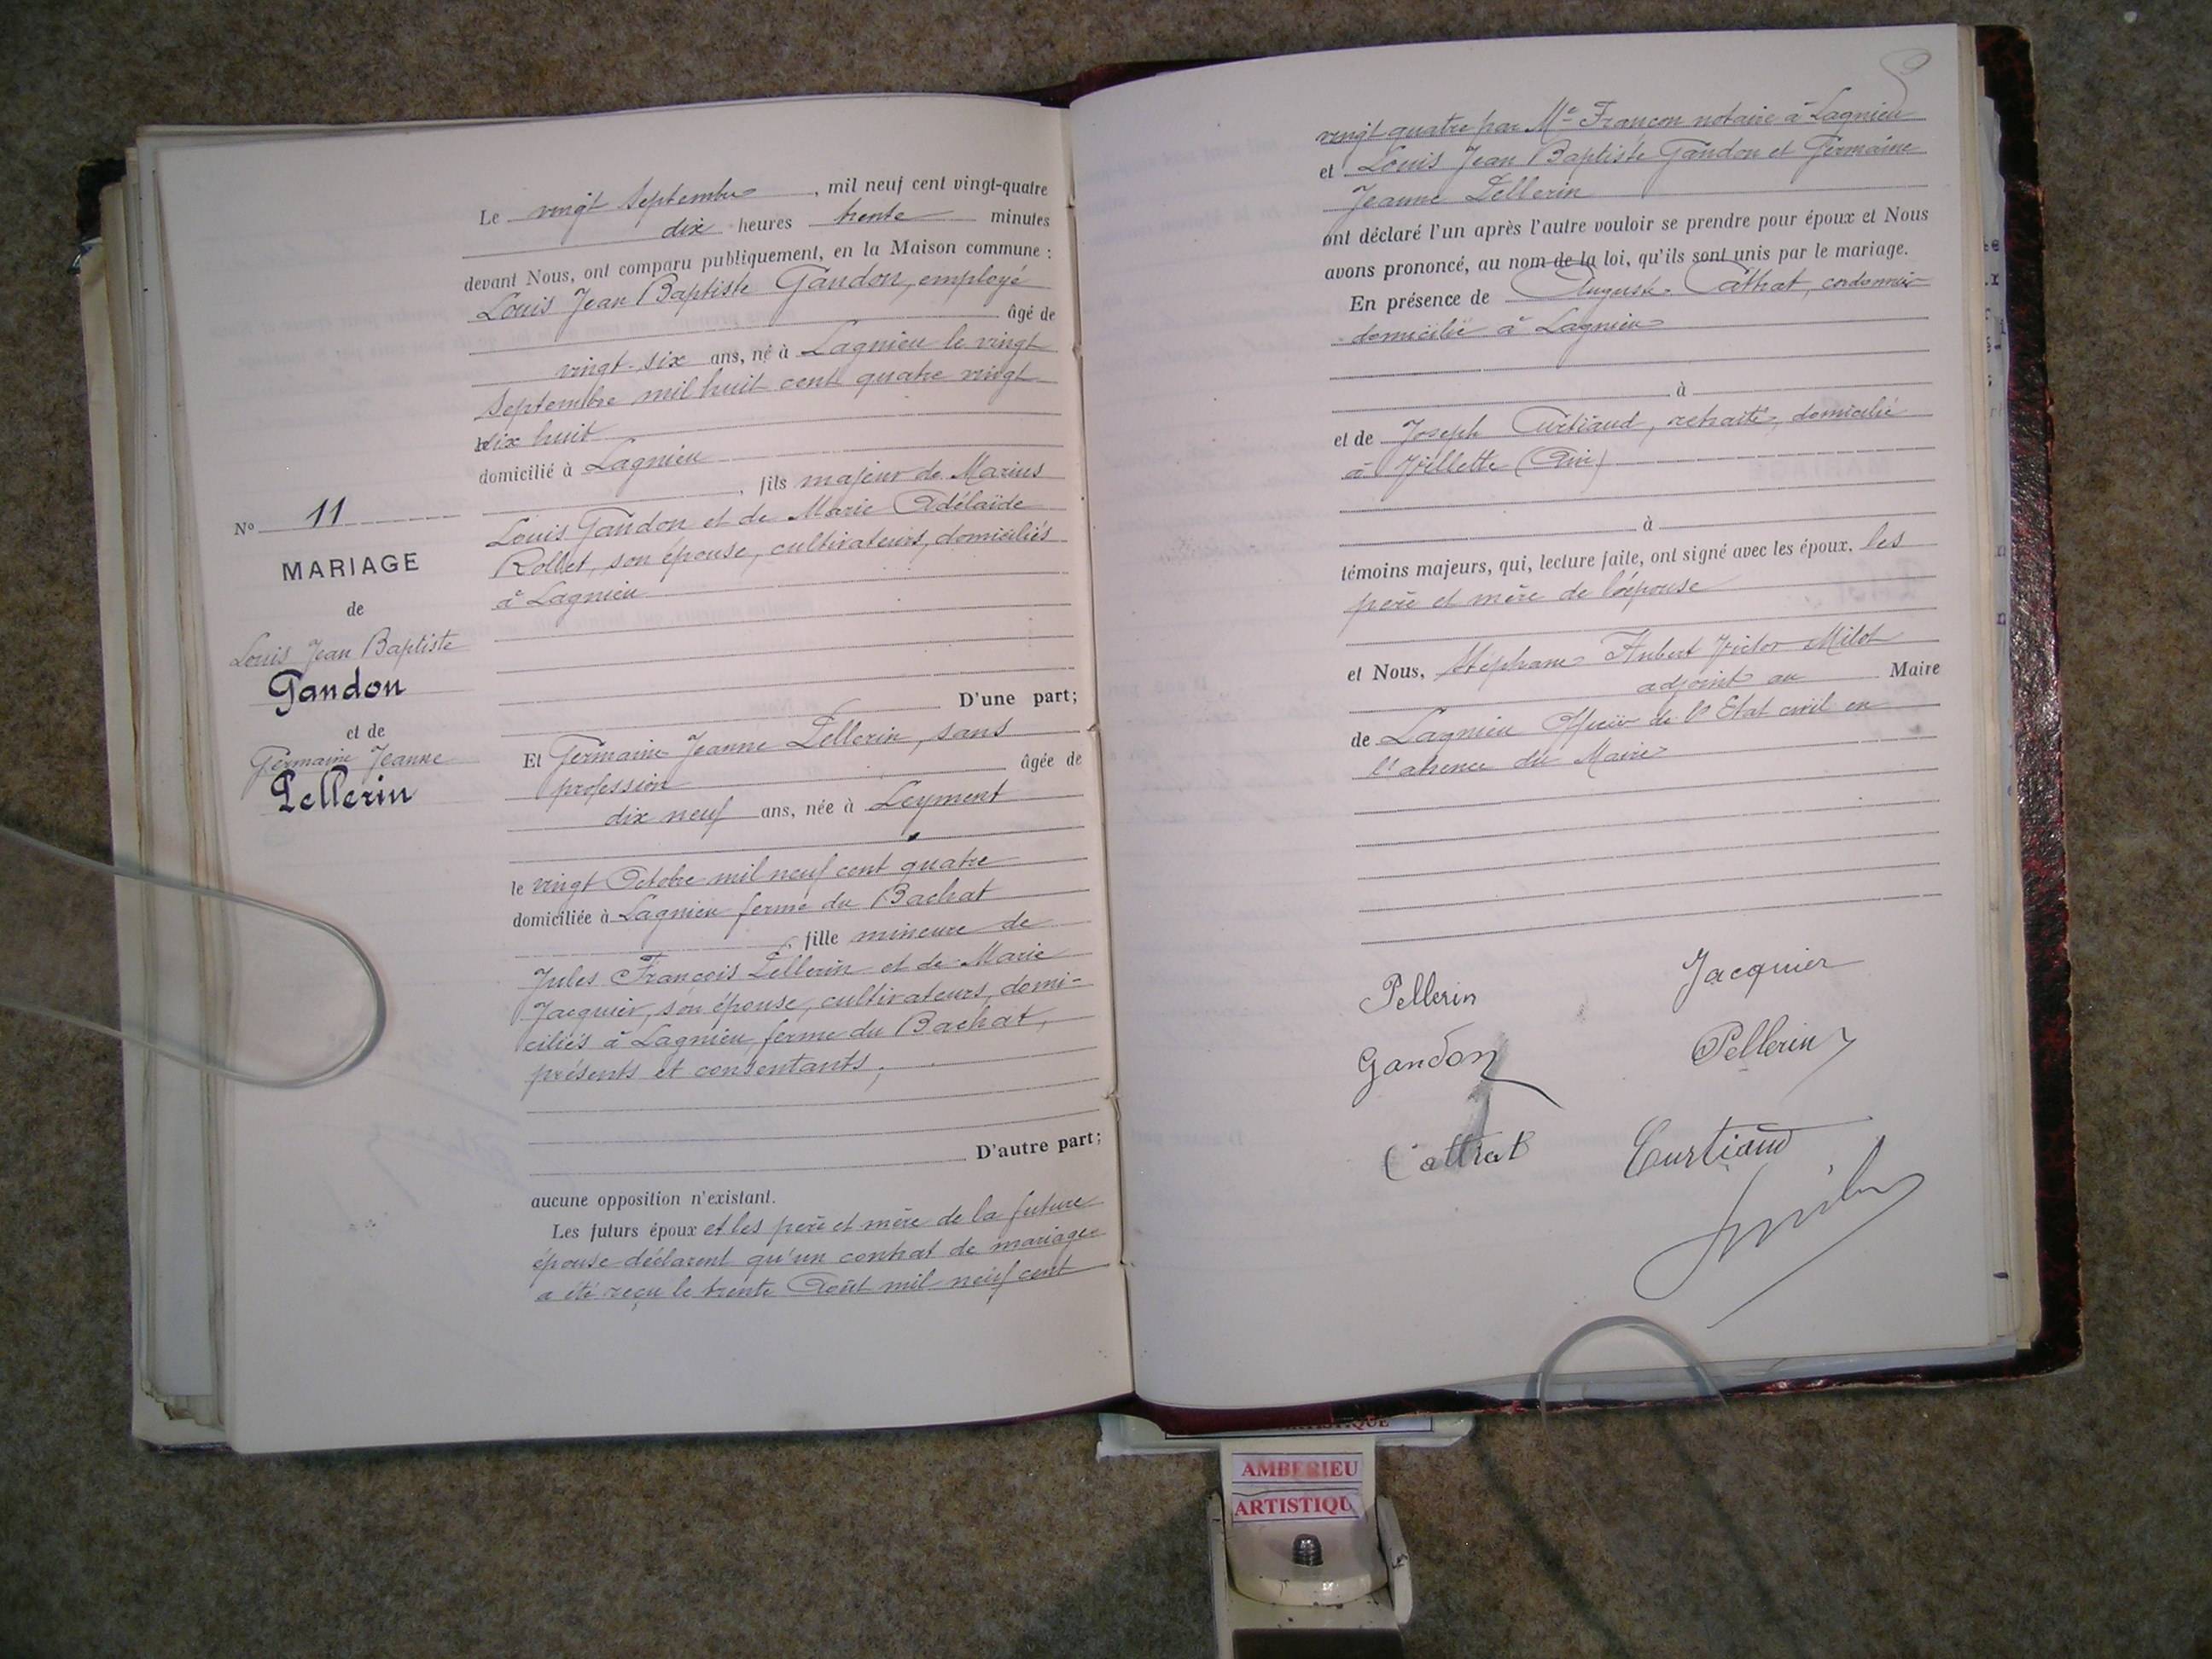 Le vingt Septembre, mil neuf cent vingt-quatre
dix heures trente minutes
devant Nous, ont comparu publiquement, en la Maison commune :
Louis Jean Baptiste Gandon, employé
âgé de
vingt-six ans, né à Lagnieu le vingt
Septembre mil huit cent quatre vingt
dix huit
domicilié à Lagnieu
, fils majeur de Marius
Louis Gandon et de Marie Adélaïde
Rollet, son épouse, cultivateurs, domiciliés
à Lagnieu
D'une part;
Et Germaine Jeanne Pellerin, sans
profession âgée de
dix neuf ans, née à Leyment
le vingt Octobre mil neuf cent quatre
domiciliée à Lagnieu ferme du Bachat
, fille mineure de
Jules François Pellerin et de Marie
Jacquier, son épouse, cultivateurs, domi-
ciliés à Lagnieu, ferme du Bachat,
présents et consentants,
D'autre part;
aucune opposition n'existant.
Les futurs époux et les père et mère de la future
épouse déclarent qu'un contrat de mariage
a été reçu le trente Août mil neuf cent
No 11
MARIAGE
de
Louis Jean Baptiste
Gandon
et de
Germaine Jeanne
Pellerin
vingt quatre par Me Françon notaire à Lagnieu
et Louis Jean Baptiste Gandon et Germaine
Jeanne Pellerin
ont déclaré l'un après l'autre vouloir se prendre pour époux et Nous
avons prononcé, au nom de la loi, qu'ils sont unis par le mariage.
En présence de Auguste Cattrat, cordonnier
domicilié à Lagnieu
à
et de Joseph Curtiaud, retraité, domicilié
à Villette (Ain)
à
témoins majeurs, qui, lecture faite, ont signé avec les époux, les
père et mère de l'épouse
et Nous, Stéphane Hubert Victor Milot
adjoint au Maire
de Lagnieu Officier de l'Etat civil en
l'absence du Maire
Pellerin
Jacquier
Gandon
Pellerin
Cattrat
Curtiaud
AMBERIEU
ARTISTIQU